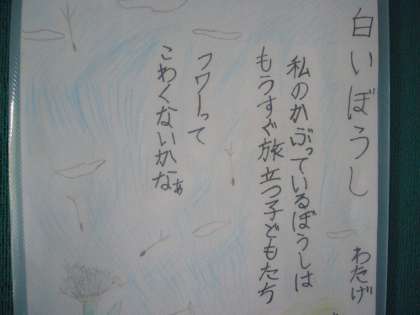 白いぼうし
わたげ
私のかぶっているぼうしは
もうすぐ旅立つ子どもたち
フワーって
こわくないかなぁ